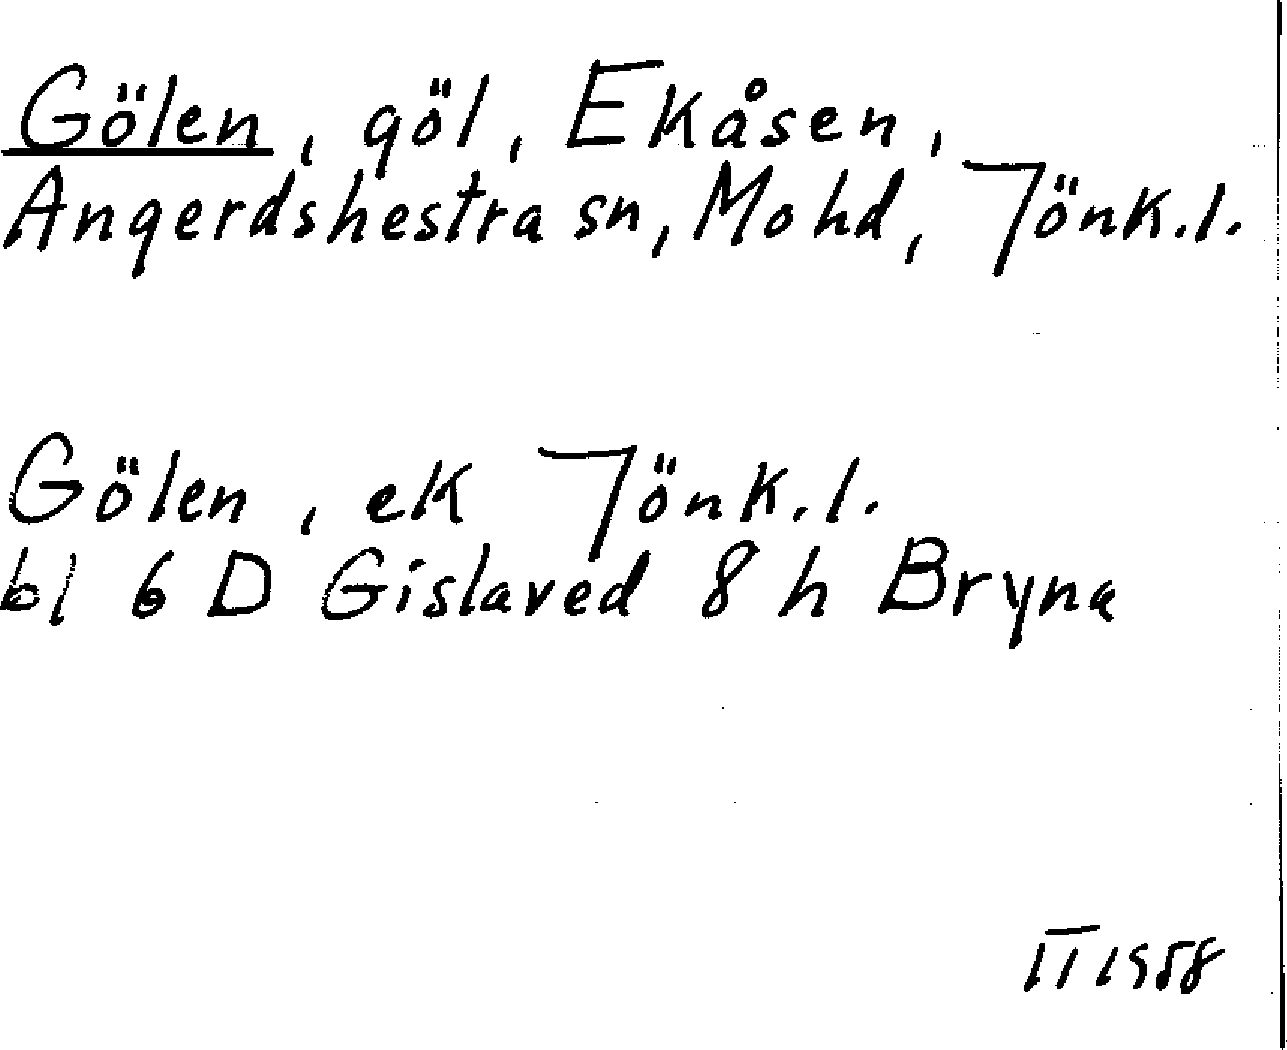 Gölen, göl, Ekåsen,
Angerdshestra sn, Mo hd, Jönk.l.
Gölen, ek Jönk.l.
bl 6 D Gislaved 8 h Bryna
II 1958